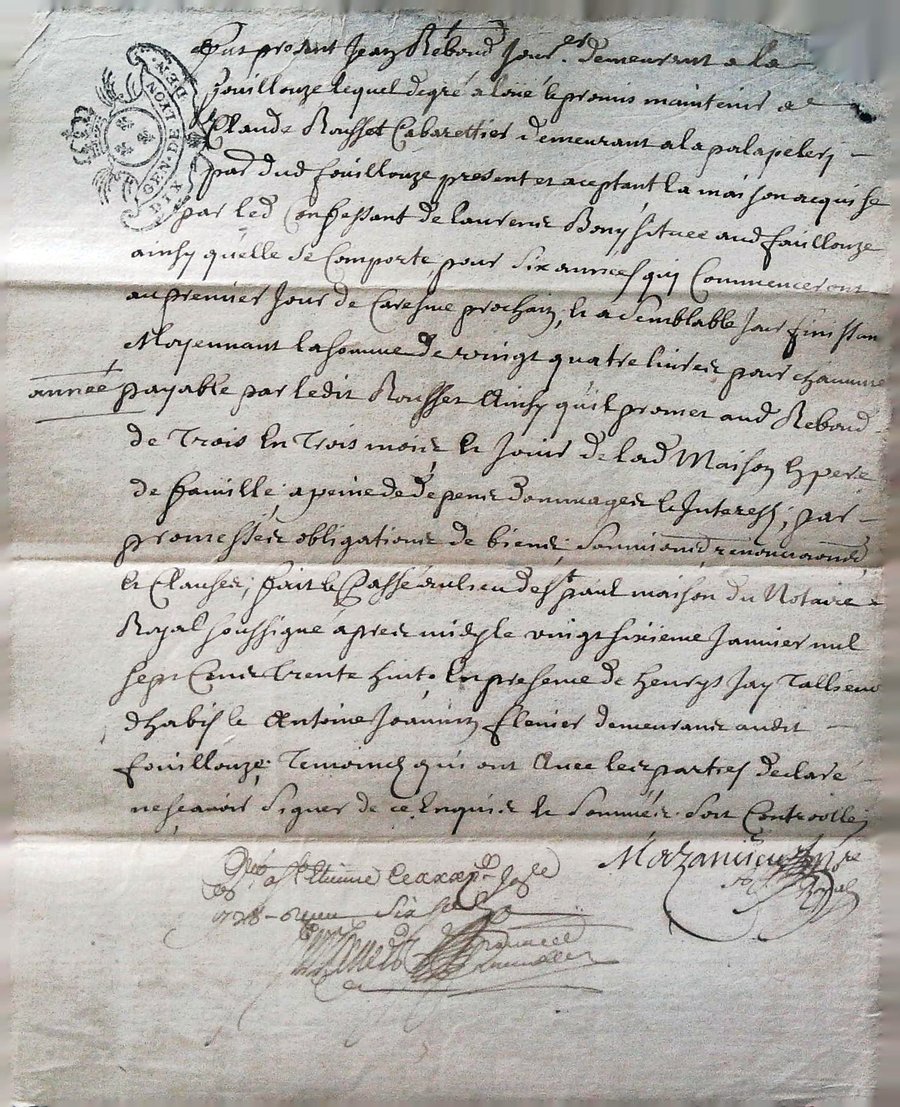 GEN. DE LYON
DIX DEN.
Fut present Jean Reboud Jour.er demeurant a la
fouillouze lequel degré a loué et promis maintenir a
Claude Rousset Cabarettier demeurant a la palapelery
par dud fouillouze present et aceptant la maison acquise
par led Confessant de laurens Bony situee aud fouillouze
ainsy quelle Se Comporte, pour Six années quy Commenceront
au premier Jour de Caresme prochain, et a Semblable Jour finissan
Moyennant la somme de vingt quatre livres pour chacune
année payable par ledit Rousset Ainsy quil promet aud Reboud
de Trois En Trois mois et Jouir de lad Maison En pere
de famille; a peine de Depens dommages et Interests; par
promesses obligations de biens; Soumissions renonciations
et Clauses; fait et Passé au lieu de St paul maison du Notaire
Royal soussigné apres midy le vingt sixieme Janvier mil
sept Cens trente huit. En presence de henrys Jay Tallieur
dhabis et Antoine Joannin demeurans audit
fouillouze; Temoins qui ont Avec les parties declaré
ne scavoir Signer de ce Enquis et Sommés. Soit Controollé
a St Etienne
1738
Royal